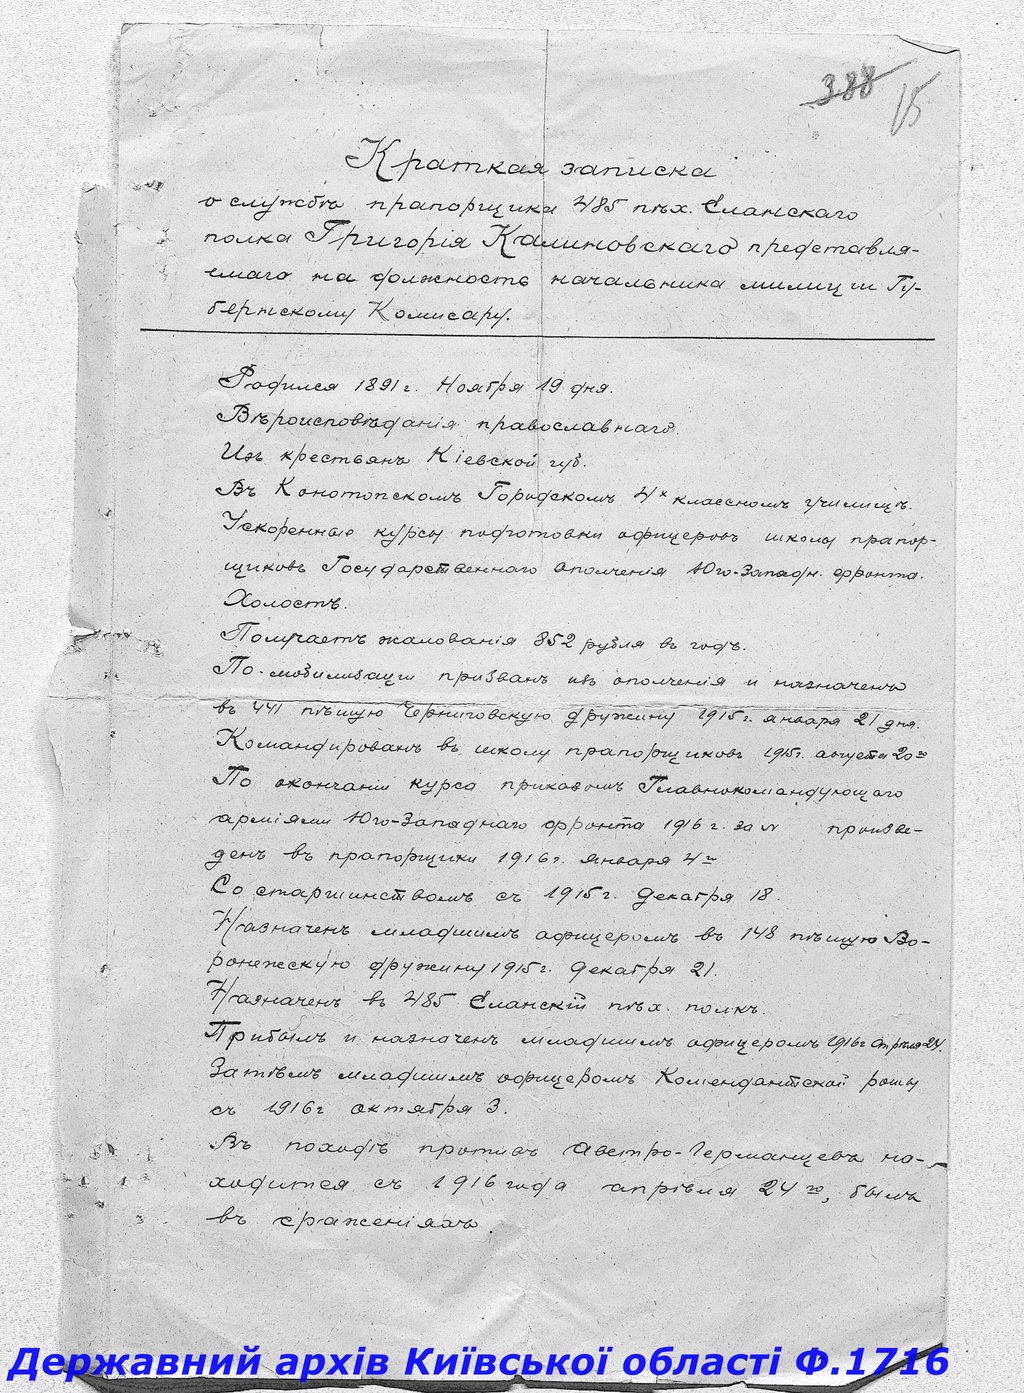 388
15
Краткая записка
о службѣ прапорщика 485 пѣх. Еланскаго
полка Григорія Калиновскаго представля-
емаго на должность начальника милиции Гу-
бернскому Комисару.
Родился 1891 г. Ноября 19 дня.
Вѣроисповѣданія православнаго.
Изъ крестьянъ Кіевской губ.
Въ Конотопскомъ Городскомъ 4х классномъ училищѣ.
Ускоренные курсы подготовки офицеровъ школы прапор-
щиковъ Государственнаго ополченія Юго-Западн. фронта.
Холостъ.
Получаетъ жалованія 852 рубля въ годъ.
По мобилизаціи призванъ изъ ополченія и назначенъ
въ 441 пѣшую Черниговскую дружину 1915 г. января 21 дня.
Командированъ въ школу прапорщиковъ 1915 г. августа 20го
По окончаніи курса приказомъ Главнокомандующаго
арміями Юго-Западнаго фронта 1916 г. за № произве-
денъ въ прапорщики 1916 г. января 4го
Со старшинствомъ съ 1915 г. декабря 18.
Назначенъ младшимъ офицеромъ въ 148 пѣшую Во-
ронежскую дружину 1915 г. декабря 21.
Назначенъ въ 485 Еланскій пѣх. полкъ.
Прибылъ и назначенъ младшимъ офицеромъ 1916 г. Апрѣля 24.
Затѣмъ младшимъ офицеромъ Комендантской роты
съ 1916 г октября 3.
Въ походѣ противъ Австро-Германцевъ на-
ходится съ 1916 года апрѣля 24го, былъ
въ сраженіяхъ.
Державний архів Київської області Ф.1716